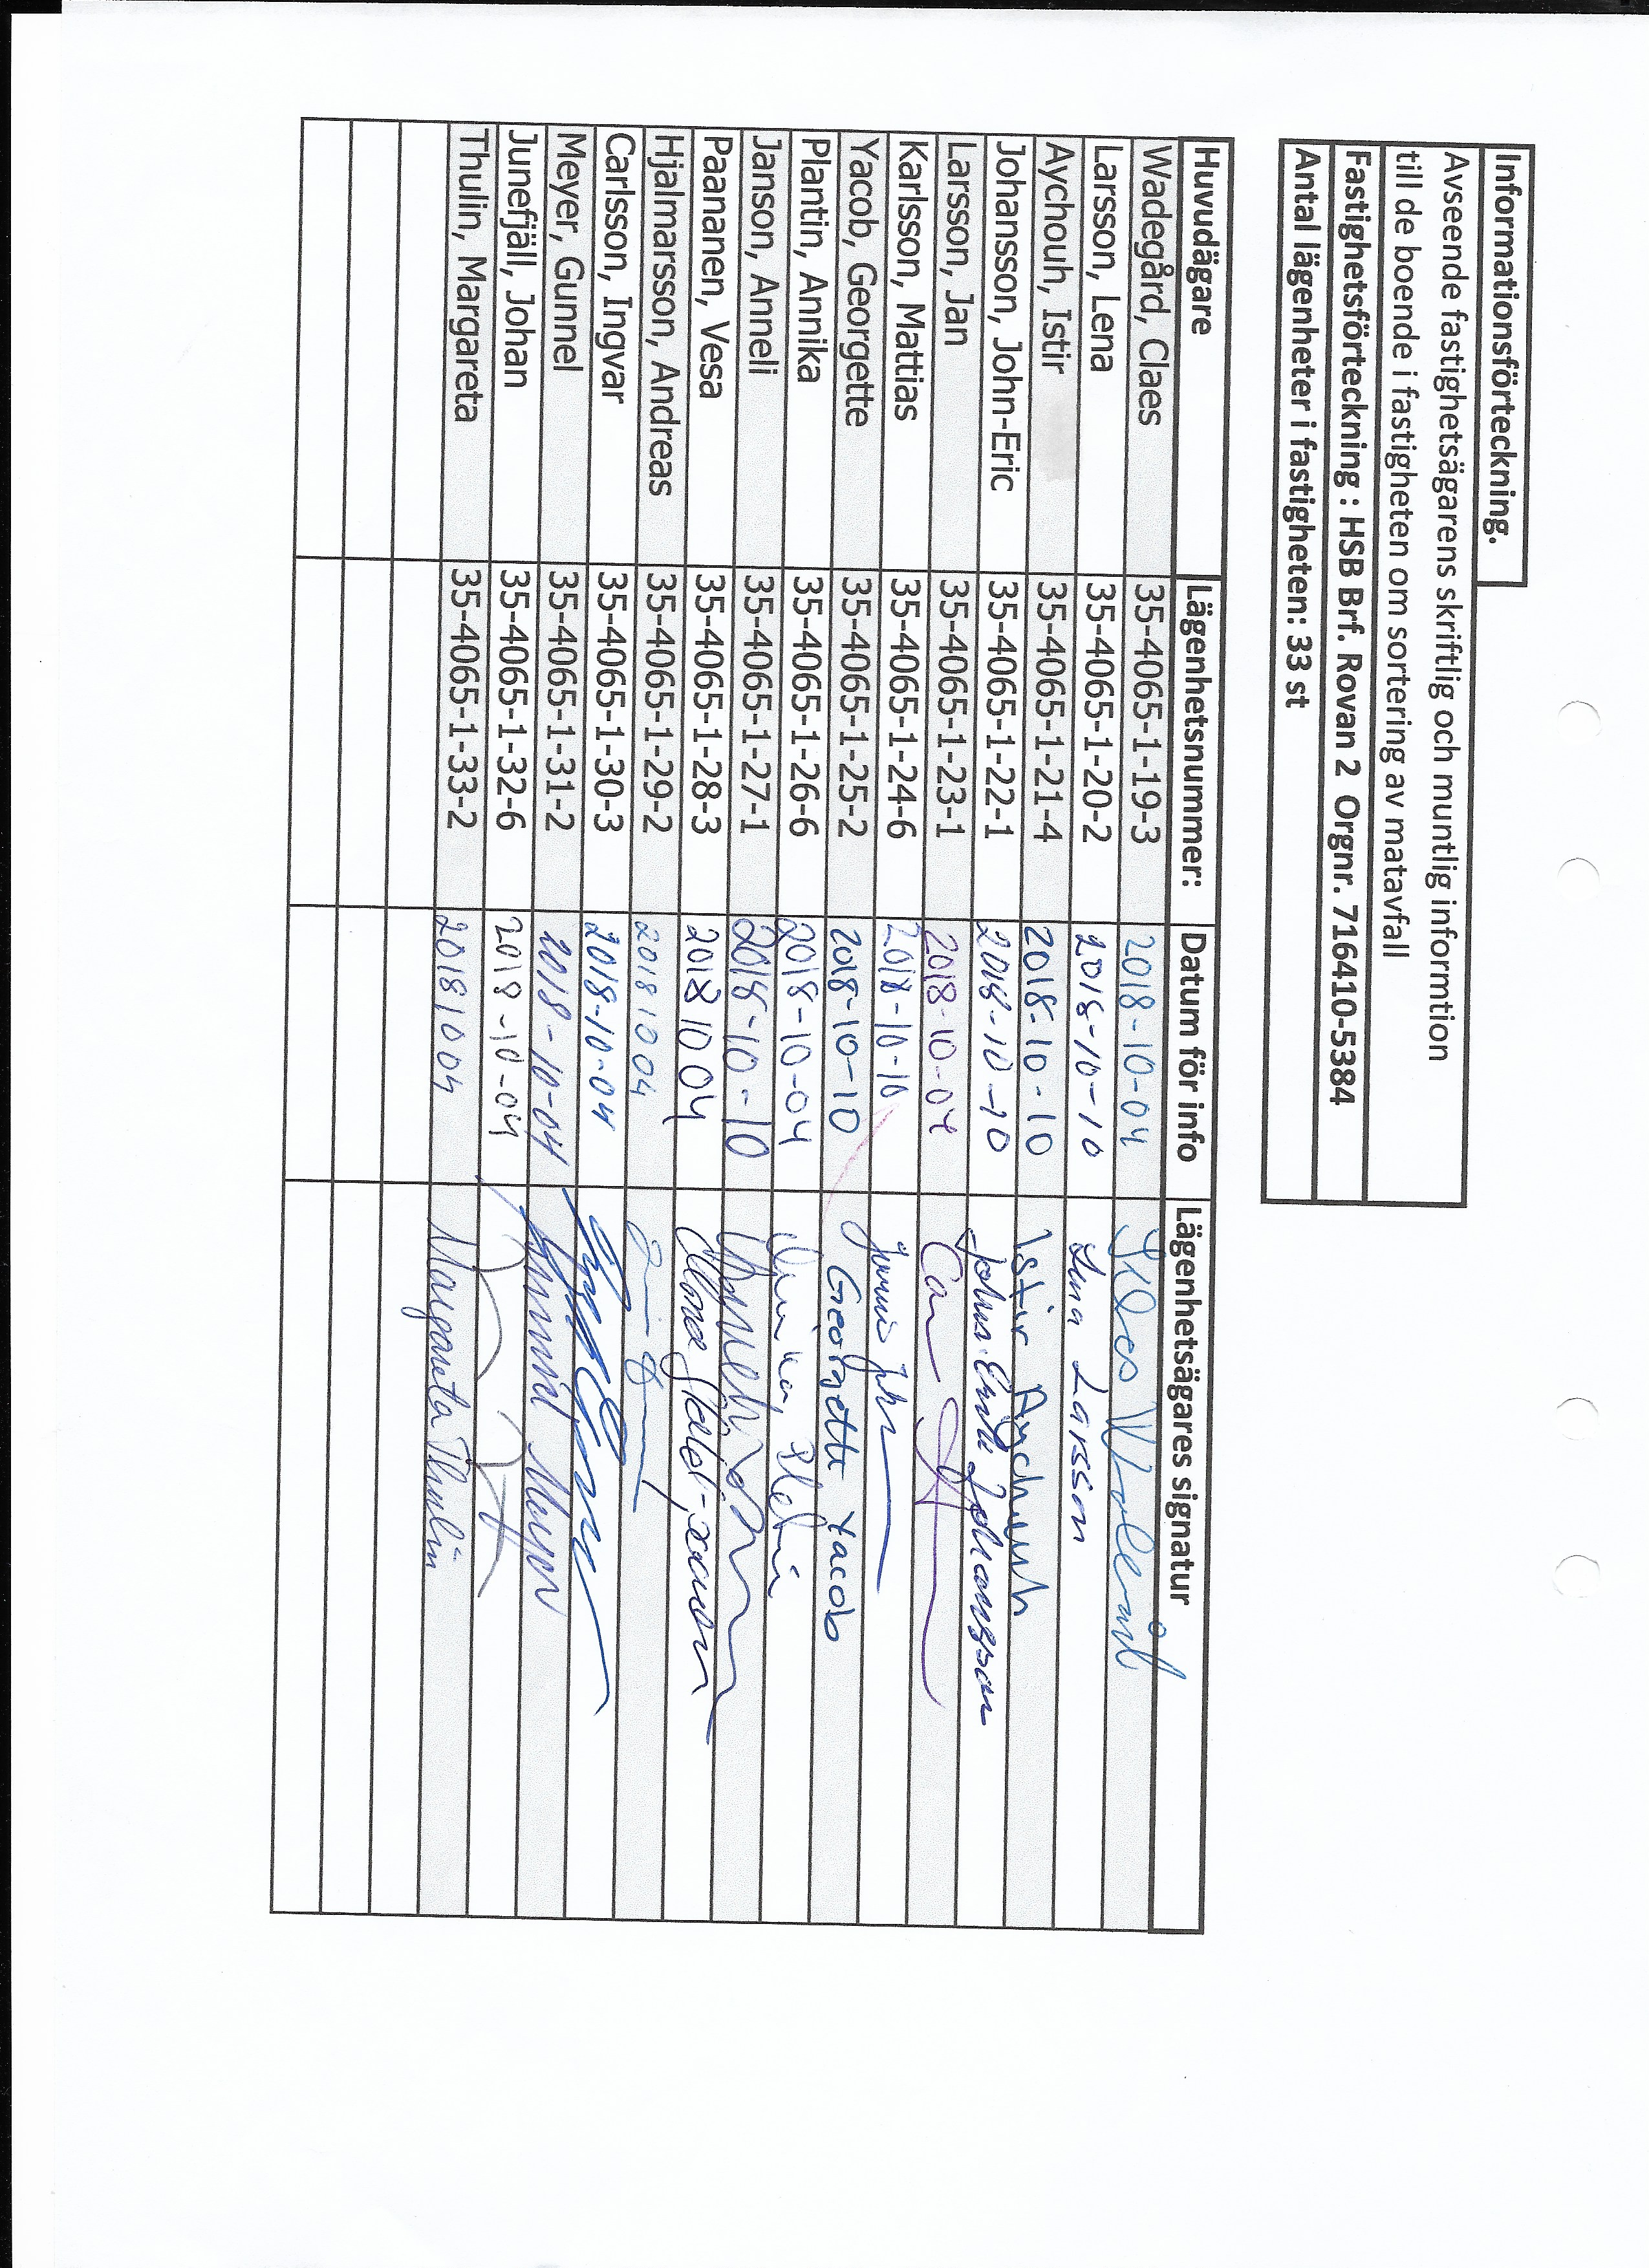 Informationsförteckning.
Avseende fastighetsägarens skriftlig och muntlig informtion
till de boende i fastigheten om sortering av matavfall
Fastighetsförteckning : HSB Brf. Rovan 2 Orgnr. 716410-5384
Antal lägenheter i fastigheten: 33 st
Huvudägare Lägenhetsnummer: Datum för info Lägenhetsägares signatur
Wadegård, Claes 35-4065-1-19-3 2018-10-04
Larsson, Lena 35-4065-1-20-2 2018-10-10 Lena Larsson
Aychouh, Istir 35-4065-1-21-4 2018-10-10 Istir Aychouh
Johansson, John-Eric 35-4065-1-22-1 2018-10-10 John-Eric Johansson
Larsson, Jan 35-4065-1-23-1 2018-10-04
Karlsson, Mattias 35-4065-1-24-6 2018-10-10
Yacob, Georgette 35-4065-1-25-2 2018-10-10 Georgette Yacob
Plantin, Annika 35-4065-1-26-6 2018-10-04 Annika Plantin
Janson, Anneli 35-4065-1-27-1 2018-10-10 Anneli
Paananen, Vesa 35-4065-1-28-3 20181004
Hjalmarsson, Andreas 35-4065-1-29-2 20181004
Carlsson, Ingvar 35-4065-1-30-3 2018-10-04
Meyer, Gunnel 35-4065-1-31-2 2018-10-04 Gunnel Meyer
Junefjäll, Johan 35-4065-1-32-6 2018-10-04
Thulin, Margareta 35-4065-1-33-2 20181004 Margareta Thulin